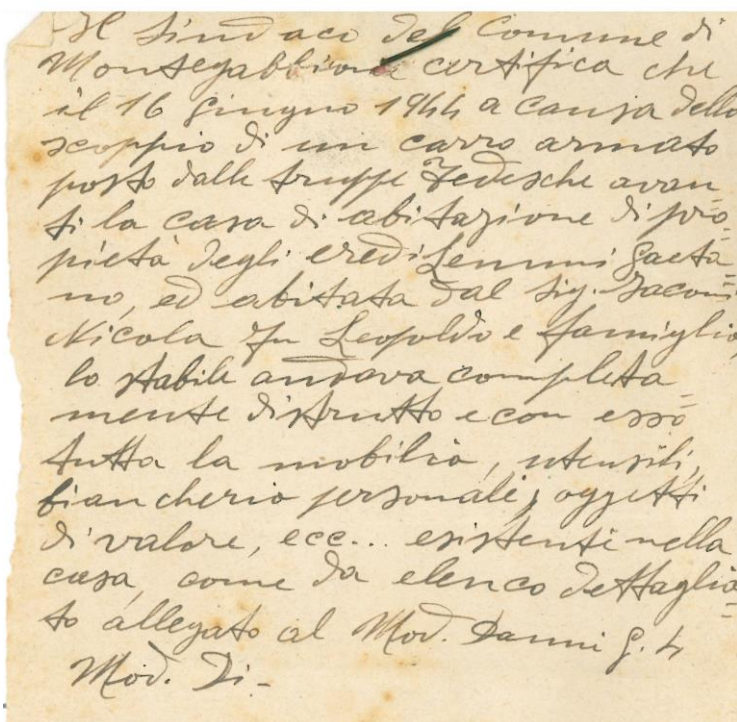 Il Sindaco del Comune di
Montegabbione certifica che
il 16 giugno 1944 a causa dello
scoppio di un carro armato
posto dalle truppe Tedesche avan=
ti la casa di abitazione di pro=
pietà degli eredi Lemmi Gaeta=
no, ed abitata dal Sig. Iaconi
Nicola fu Leopoldo e famiglia,
lo stabile andava completa=
mente distrutto e con esso
tutta la mobilia, utensili,
biancheria personale, oggetti
di valore, ecc... esistenti nella
casa, come da elenco dettaglia=
to allegato al Mod. Danni G. 4
Mod. Di-